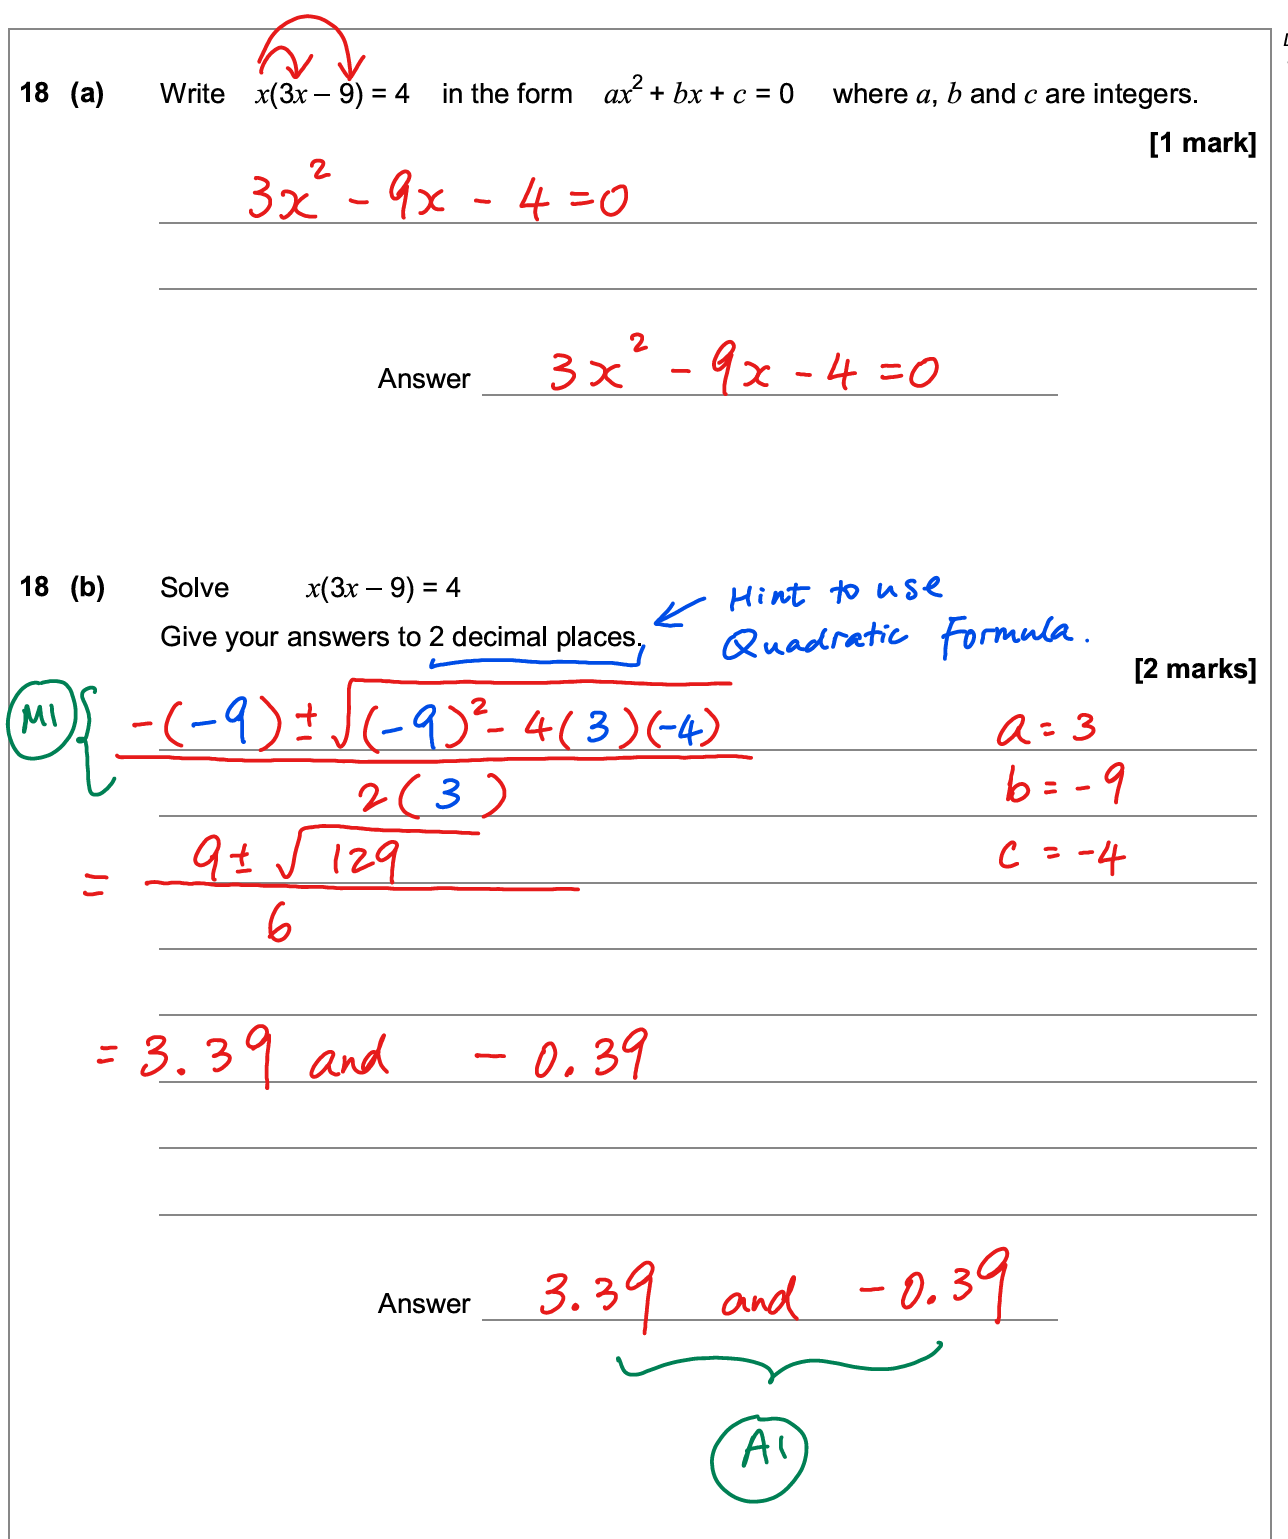 18 (a) Write x(3x – 9) = 4 in the form ax² + bx + c = 0 where a, b and c are integers.
[1 mark]
3x² - 9x - 4 = 0
Answer 3x² - 9x - 4 = 0
18 (b) Solve x(3x – 9) = 4
Hint to use
Give your answers to 2 decimal places.
Quadratic Formula.
[2 marks]
M1
-(-9) ± √((-9)² - 4(3)(-4))
2(3)
a = 3
b = -9
c = -4
= 9 ± √129
6
= 3.39 and - 0.39
Answer 3.39 and - 0.39
A1